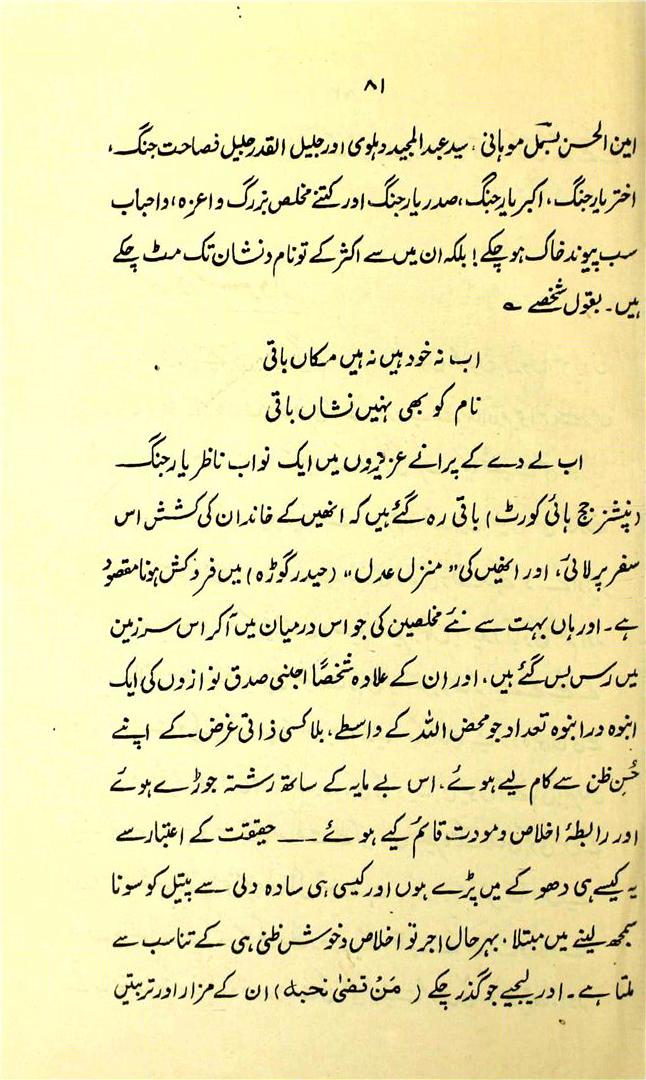 ۸۱
امین الحسن بسمل موہانی، سید عبدالمجید دہلوی اور جلیل القدر جلیل فصاحت جنگ،
اختر یار جنگ، اکبر یار جنگ، صدر یار جنگ اور کتنے مخلص بزرگ و اعزہ، و احباب
سب پیوند خاک ہو چکے! بلکہ ان میں سے اکثر کے تو نام و نشان تک مٹ چکے
ہیں۔ بقول شخصے ؎
اب نہ خود ہیں نہ ہیں مکاں باقی
نام کو بھی نہیں نشاں باقی
اب لے دے کے پرانے عزیزوں میں ایک نواب ناظر یار جنگ
(پنشنر جج ہائی کورٹ) باقی رہ گئے ہیں کہ انھیں کے خاندان کی کشش اس
سفر پر لائی، اور انھیں کی "منزل عدل" (حیدر گوڑہ) میں فروکش ہونا مقصود
ہے۔ اور ہاں بہت سے نئے مخلصین کی جو اس درمیان میں آکر اس سرزمین
میں رس بس گئے ہیں، اور ان کے علاوہ شخصاً اجنبی صدق نوازوں کی ایک
انبوہ در انبوہ تعداد جو محض اللہ کے واسطے، بلا کسی ذاتی غرض کے اپنے
حُسنِ ظن سے کام لیے ہوئے، اس بے مایہ کے ساتھ رشتہ جوڑے ہوئے
اور رابطۂ اخلاص و مودت قائم کیے ہوئے —— حقیقت کے اعتبار سے
یہ کیسے ہی دھوکے میں پڑے ہوں اور کیسی ہی سادہ دلی سے پیتل کو سونا
سمجھ لینے میں مبتلا، بہرحال اجر تو اخلاص و خوش ظنی ہی کے تناسب سے
ملتا ہے۔ اور لیجیے جو گذر چکے (مَنْ قضیٰ نحبہ) ان کے مزار اور تربتیں